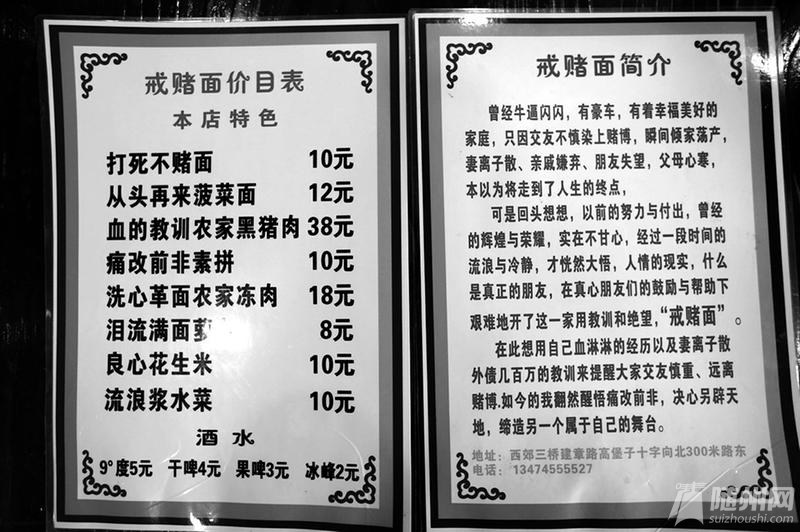 戒赌面价目表
本店特色
打死不赌面 10元
从头再来菠菜面 12元
血的教训农家黑猪肉 38元
痛改前非素拼 10元
洗心革面农家冻肉 18元
泪流满面萝 8元
良心花生米 10元
流浪浆水菜 10元
酒水
9°度5元 干啤4元 果啤3元 冰峰2元
戒赌面简介
曾经牛逼闪闪，有豪车，有着幸福美好的
家庭，只因交友不慎染上赌博，瞬间倾家荡产，
妻离子散、亲戚嫌弃、朋友失望，父母心寒，
本以为将走到了人生的终点，
可是回头想想，以前的努力与付出，曾经
的辉煌与荣耀，实在不甘心，经过一段时间的
流浪与冷静，才恍然大悟，人情的现实，什么
是真正的朋友，在真心朋友们的鼓励与帮助下
艰难地开了这一家用教训和绝望，“戒赌面”。
在此想用自己血淋淋的经历以及妻离子散
外债几百万的教训来提醒大家交友慎重、远离
赌博.如今的我翻然醒悟痛改前非，决心另辟天
地，缔造另一个属于自己的舞台。
地址：西郊三桥建章路高堡子十字向北300米路东
电话：13474555527
随州网
suizhoushi.com